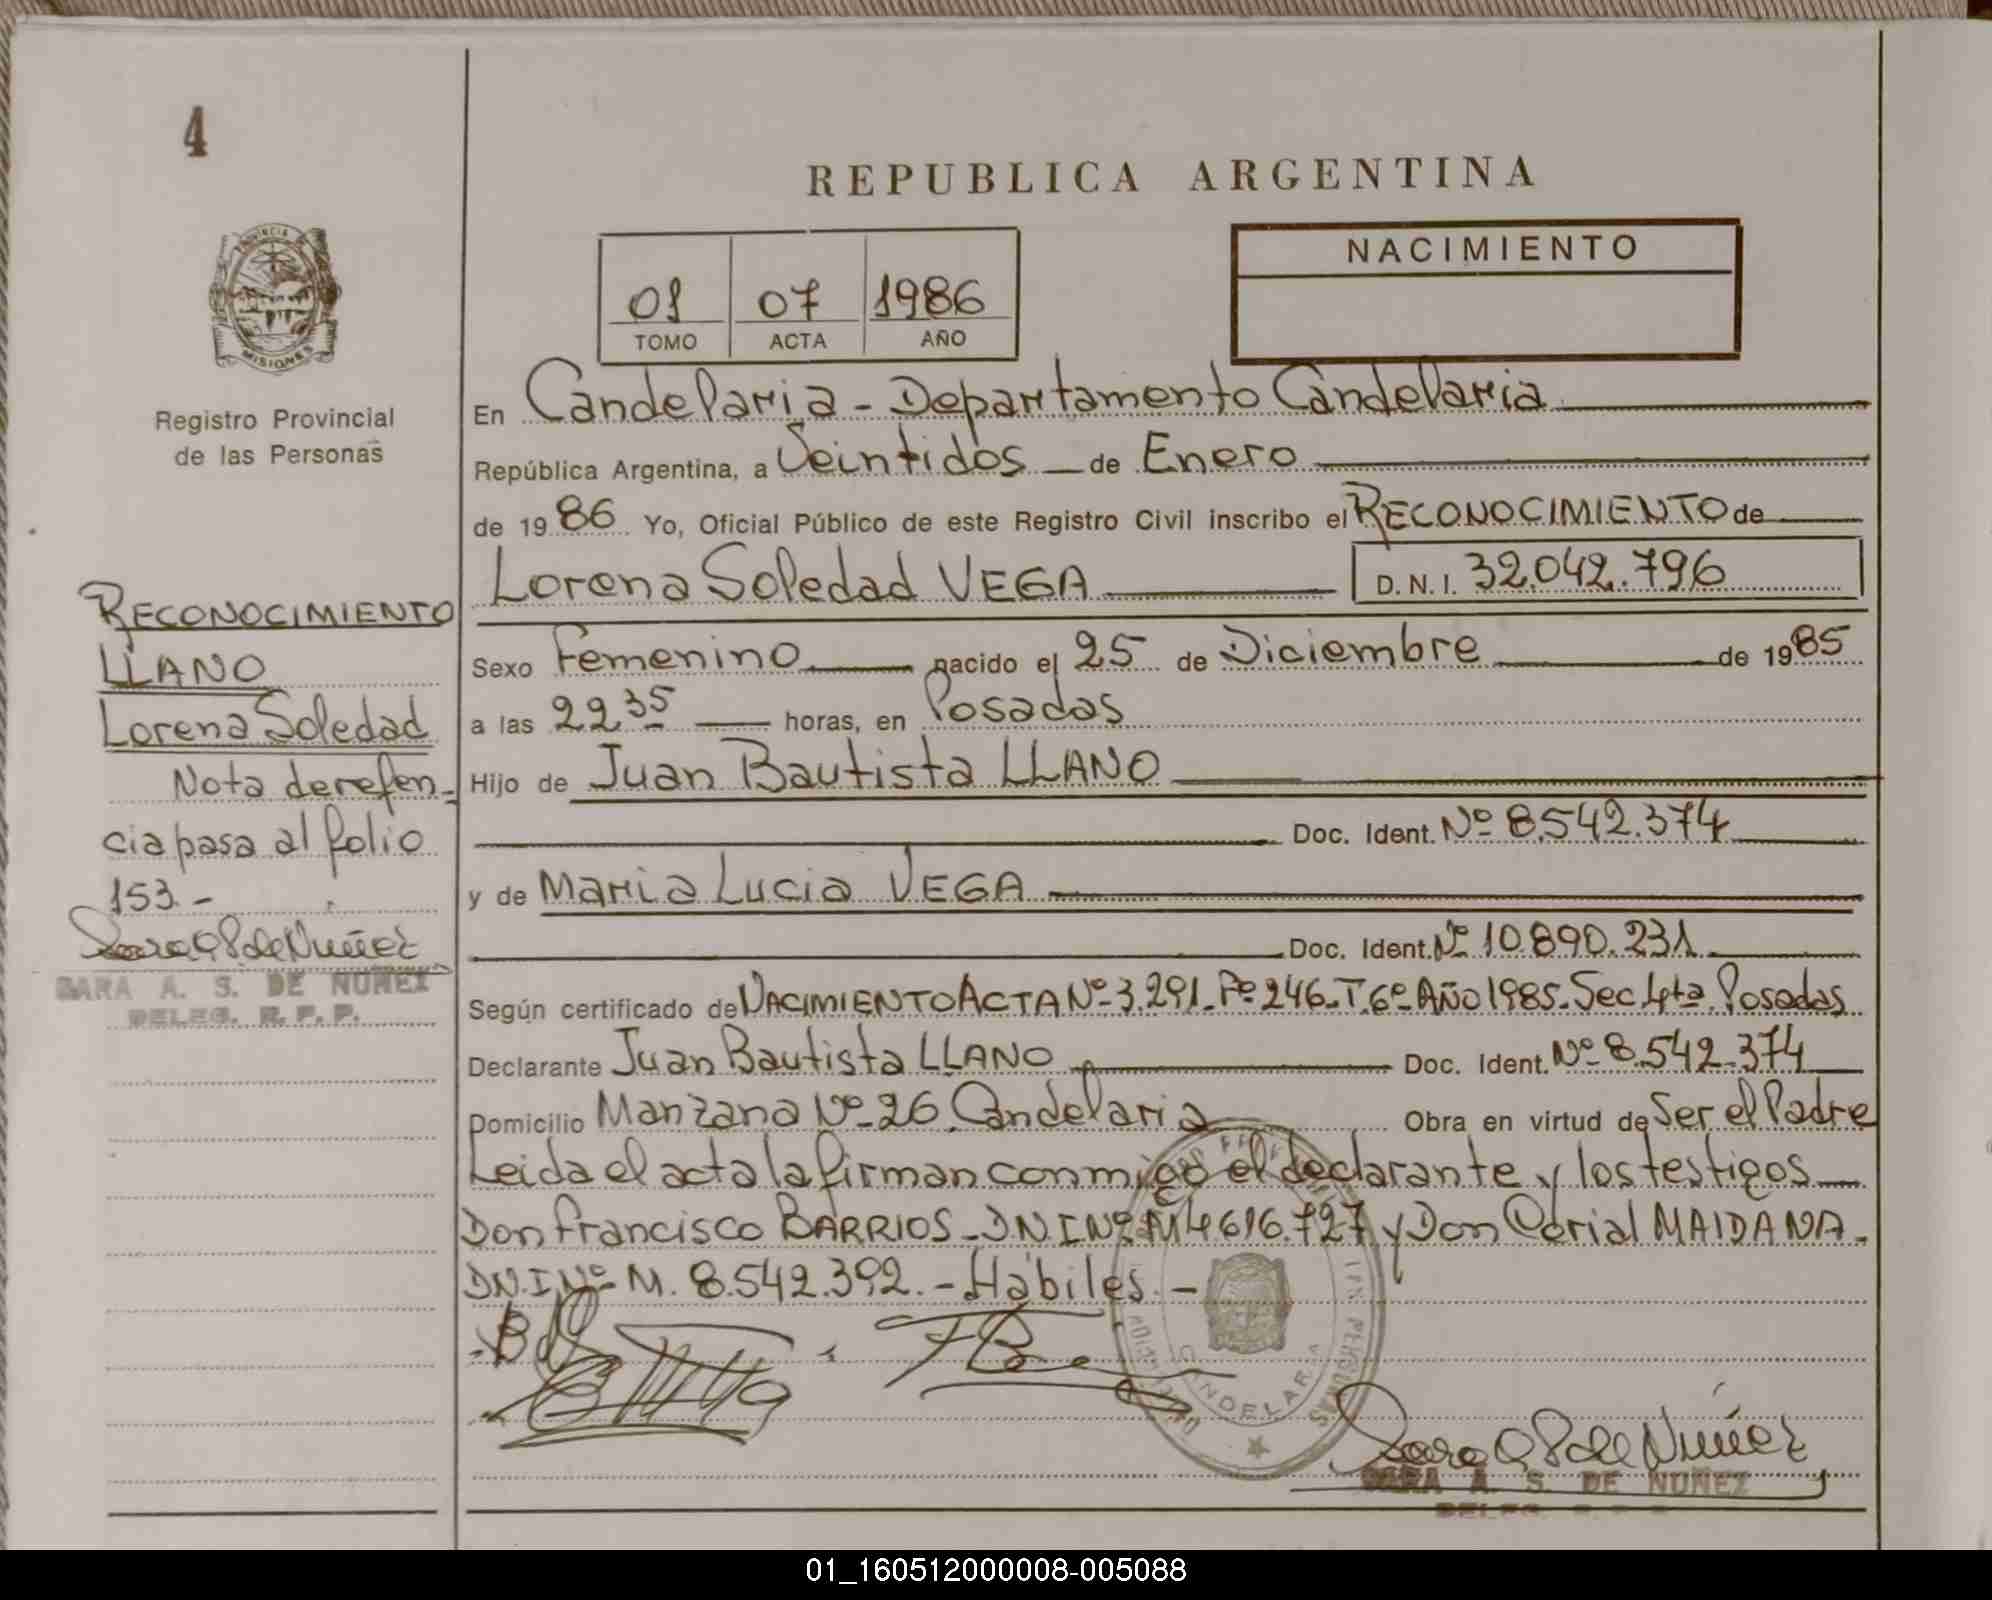 4
REPUBLICA ARGENTINA
PROVINCIA DE
MISIONES
Registro Provincial
de las Personas
01 07 1986
TOMO ACTA AÑO
NACIMIENTO
En Candelaria - Departamento Candelaria
República Argentina, a Veintidos de Enero
de 1986 Yo, Oficial Público de este Registro Civil inscribo el RECONOCIMIENTO de
Lorena Soledad VEGA D.N.I. 32.042.796
Sexo Femenino nacido el 25 de Diciembre de 1985
a las 22 35 horas, en Posadas
Hijo de Juan Bautista LLANO
Doc. Ident. Nº 8.542.374
y de Maria Lucia VEGA
Doc. Ident. Nº 10.890.231
Según certificado de NACIMIENTO ACTA Nº 3.291. Fº 246. T. 6º AÑO 1985. Sec. 4ta. Posadas
Declarante Juan Bautista LLANO Doc. Ident. Nº 8.542.374
Domicilio Manzana Nº 26. Candelaria Obra en virtud de Ser el Padre
Leida el acta la firman conmigo el declarante y los testigos
Don Francisco BARRIOS - D.N.I Nº M 4616.727 y Don MAIDANA -
D.N.I Nº M. 8.542.392. - Hábiles. -
CANDELARIA
Sara A S de Nuñez
SARA A. S. DE NUÑEZ
RECONOCIMIENTO
LLANO
Lorena Soledad
Nota de refen-
cia pasa al folio
153.-
Sara A S de Nuñez
SARA A. S. DE NUÑEZ
DELEG. R. P. P.
01_160512000008-005088